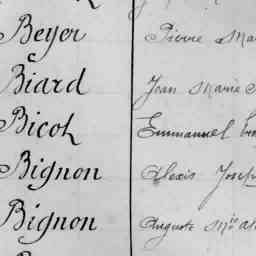 Beyer Pierre Ma
Biard Jean Marie
Bicot Emmanuel
Bignon Alexis Josep
Bignon Auguste